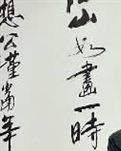 山如畫一時
想公瑾當年